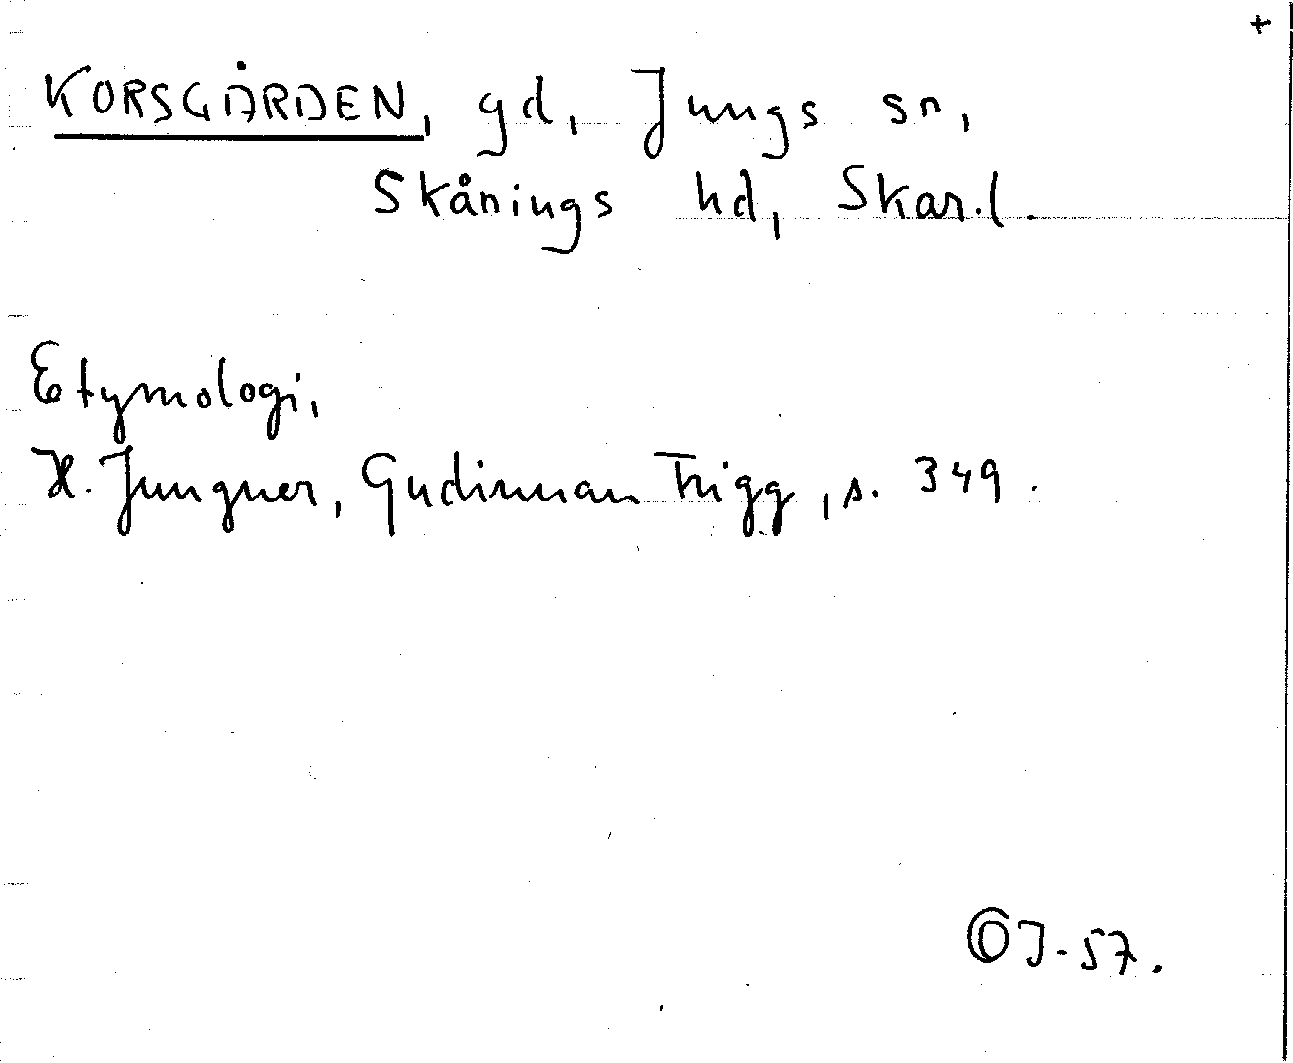 +
KORSGÅRDEN, gd, Jungs sn,
Skånings hd, Skar.l.
Etymologi,
H. Jungner, Gudinnan Frigg, s. 349.
OJ-57.